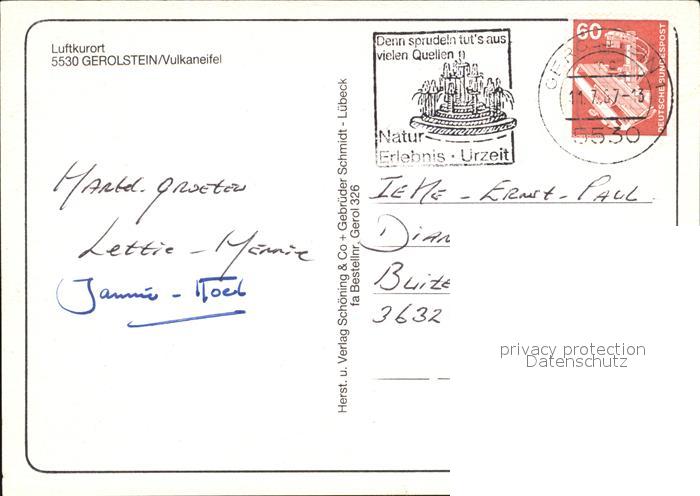 Luftkurort
5530 GEROLSTEIN/Vulkaneifel
Denn sprudeln tut's aus
vielen Quellen
Natur-
Erlebnis · Urzeit
60
DEUTSCHE BUNDESPOST
11.7.87-13
5530
Herst. u. Verlag Schöning & Co + Gebrüder Schmidt - Lübeck
fa Bestellnr. Gerol 326
Hartel. groeten
Lettie - Mennie
Jannie - Roel
Ernst - Paul
3632
privacy protection
Datenschutz